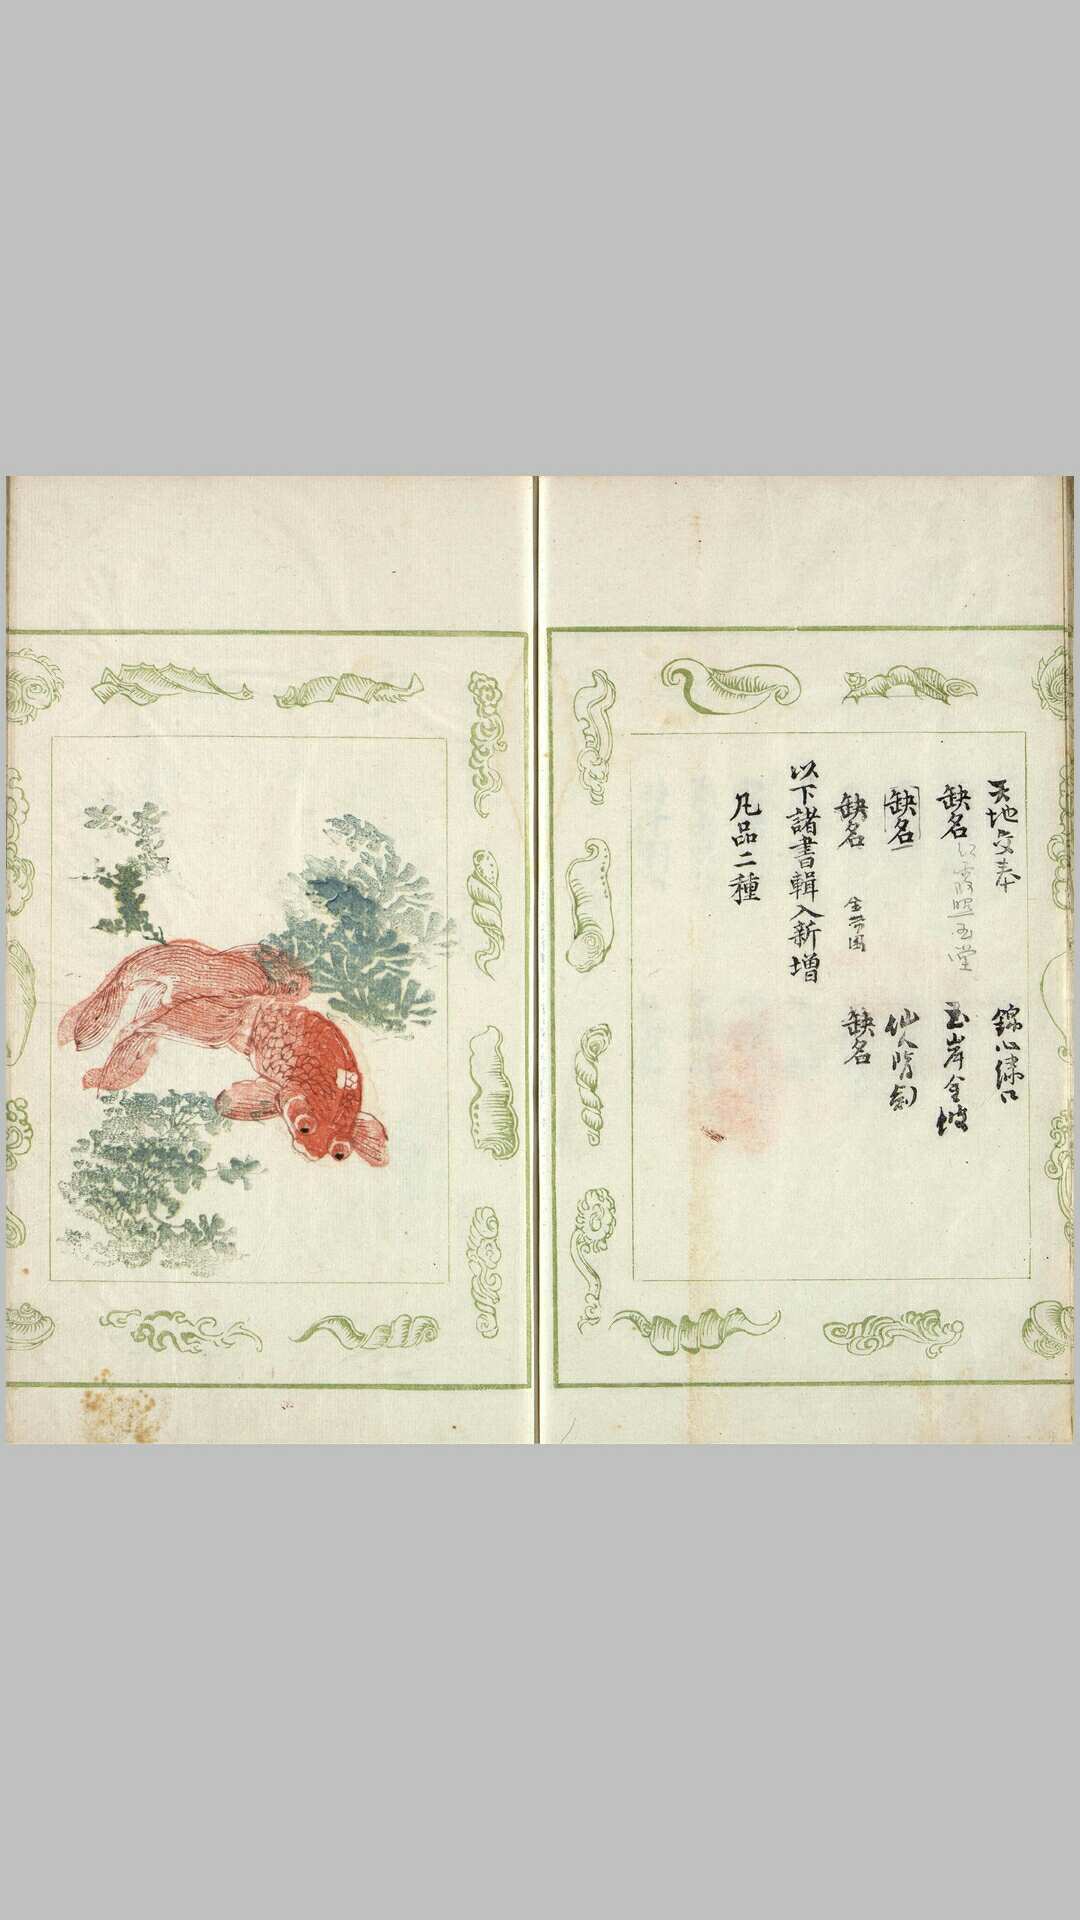 天地交泰 錦心繡口
缺名 江霞照玉堂 玉岸金坡
缺名 仙人背劍
缺名 金帶圍 缺名
以下諸書輯入新增
凡品二種